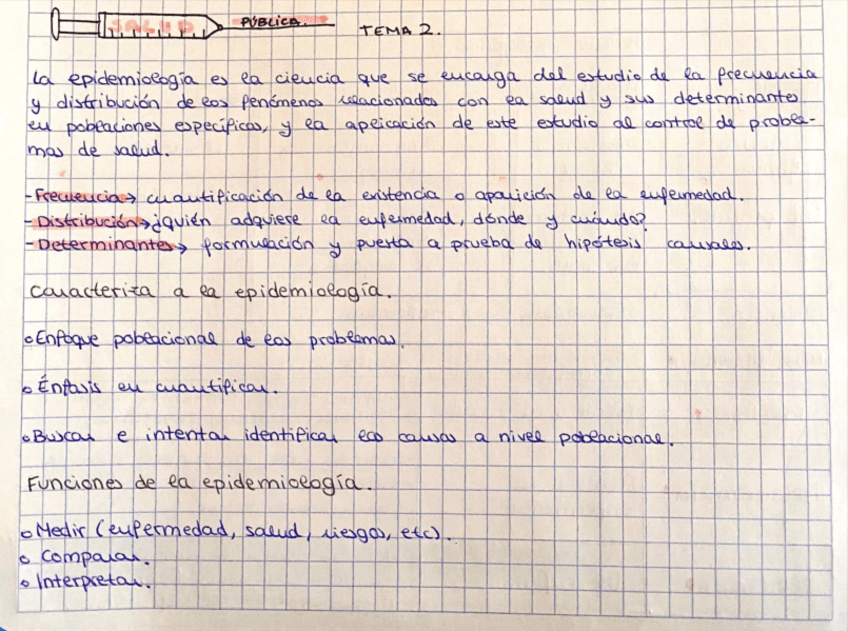 SALUD PÚBLICA. TEMA 2.
La epidemiología es la ciencia que se encarga del estudio de la frecuencia
y distribución de los fenómenos relacionados con la salud y sus determinantes
en poblaciones específicas, y la aplicación de este estudio al control de proble-
mas de salud.
-Frecuencia→ cuantificación de la existencia o aparición de la enfermedad.
-Distribución→¿quién adquiere la enfermedad, dónde y cuándo?
-Determinantes→ formulación y puesta a prueba de hipótesis causales.
Caracteriza a la epidemiología.
∘Enfoque poblacional de los problemas.
∘Énfasis en cuantificar.
∘Buscar e intentar identificar las causas a nivel poblacional.
Funciones de la epidemiología.
∘Medir (enfermedad, salud, riesgos, etc).
∘Comparar.
∘Interpretar.